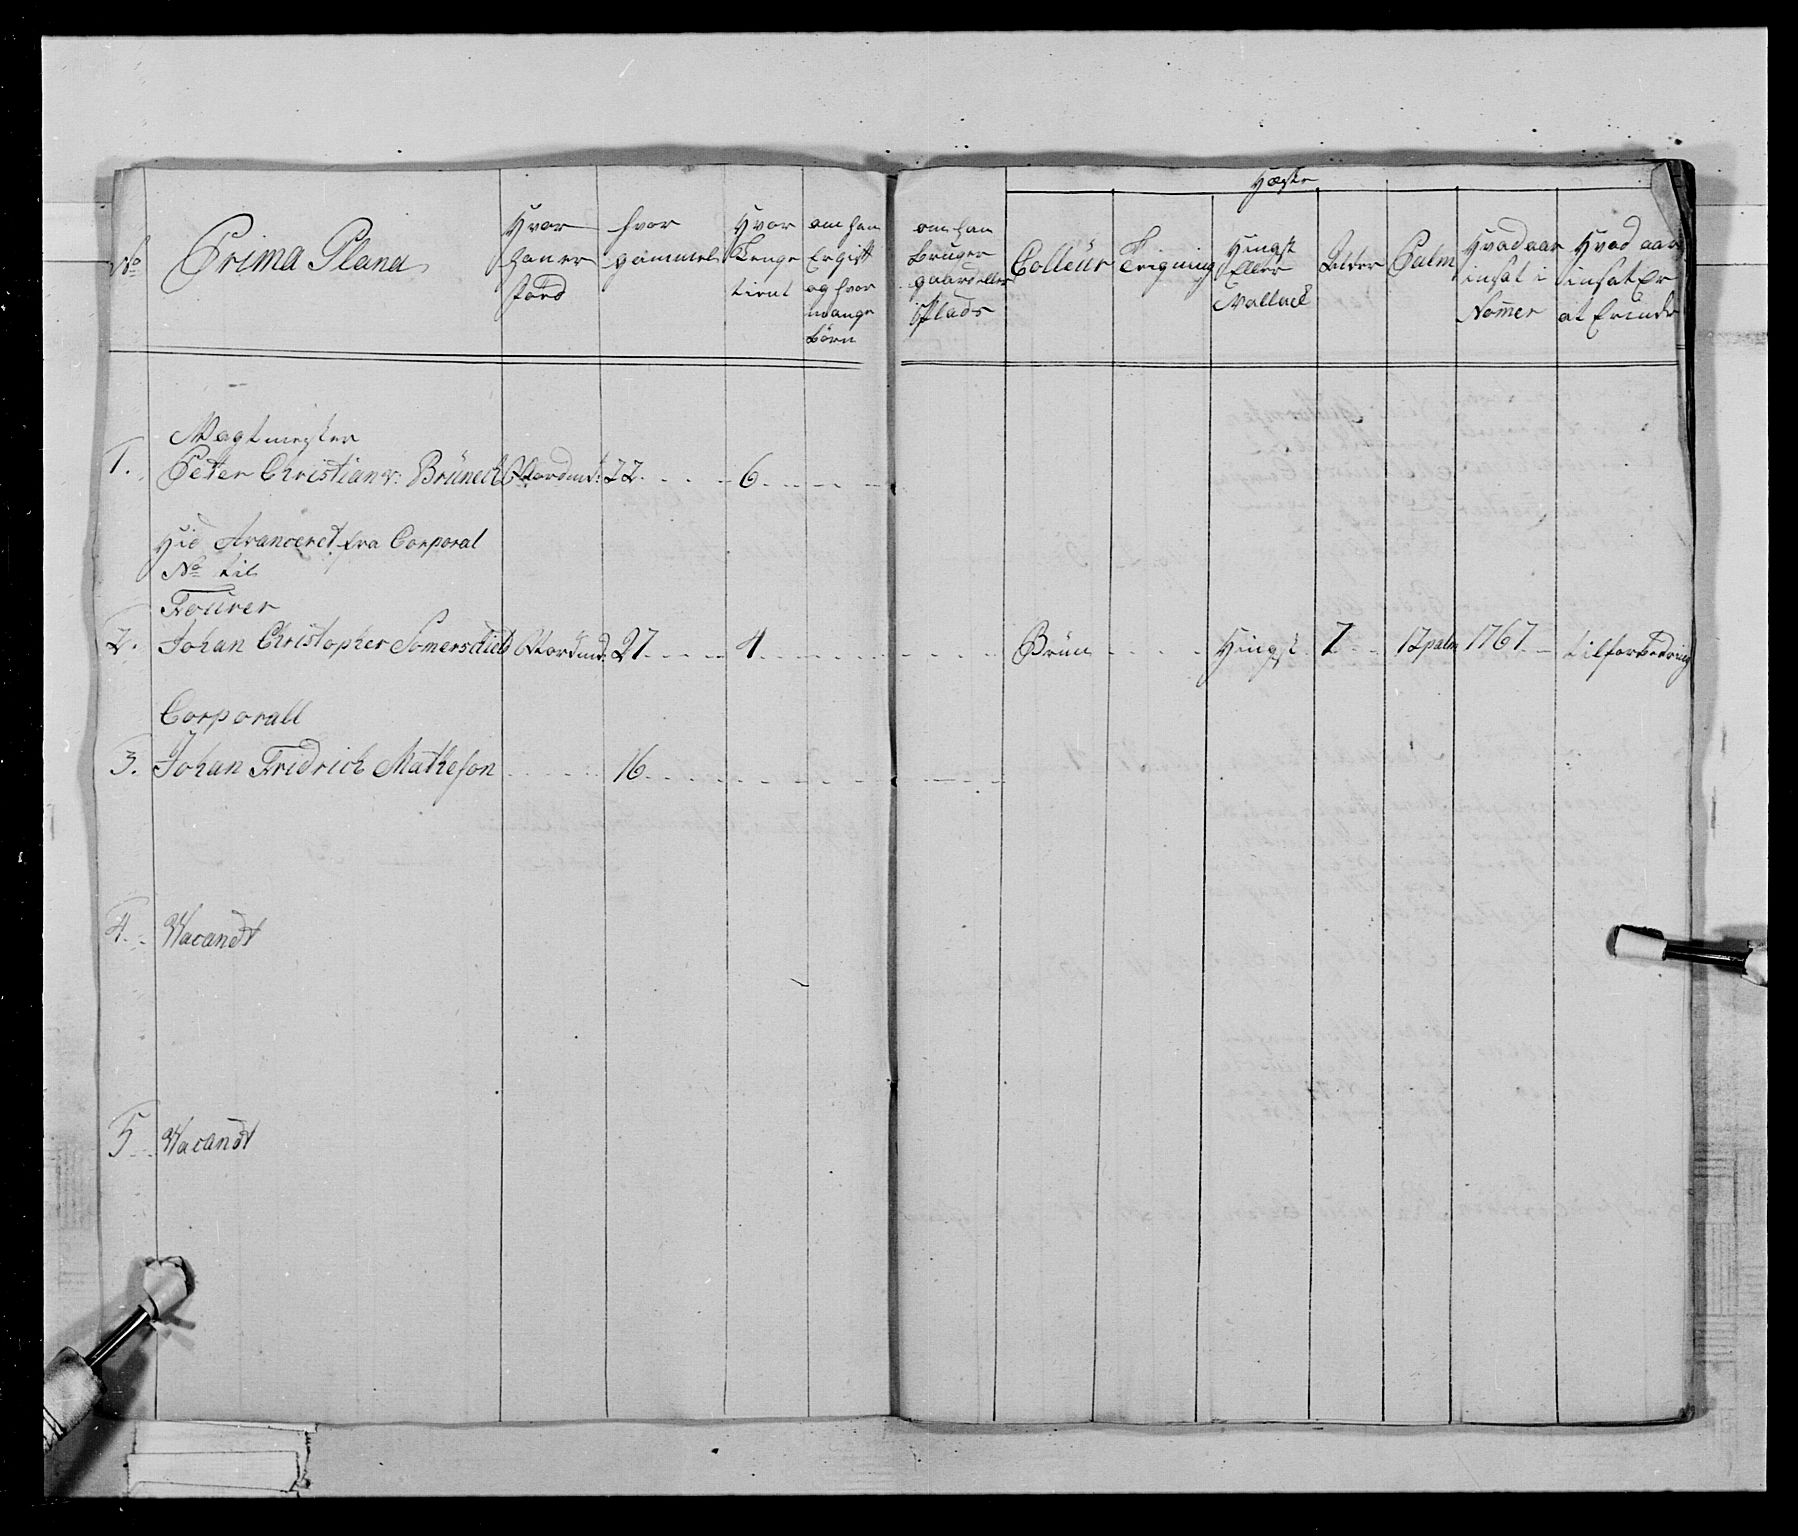 No
Prima Plana
Hvor
han er
føed
hvor
gammel
Hvor
Lenge
tient
om han
Er gift
og hvor
mange
børn
om han
bruger
gaard eller
Plads
Hæste
Colleur
Teigning
Hingst
Eller
Vallack
Alder
Palm
Hvad aar
insat i
Nomer
Hvad aar
insat Er
at Erindr
Wagtmester
1. Peter Christian v: Brüneck Nordmd: 22 6
Hid Avanceret fra Corporal
No til
Fourer
2. Johan Christopher Somerschield Nordmd: 27 4 Brun Hingst 7 12 palm 1767 til forbedring
Corporall
3. Johan Fridrich Matheson 16
4. Wacandt
5 Wacandt